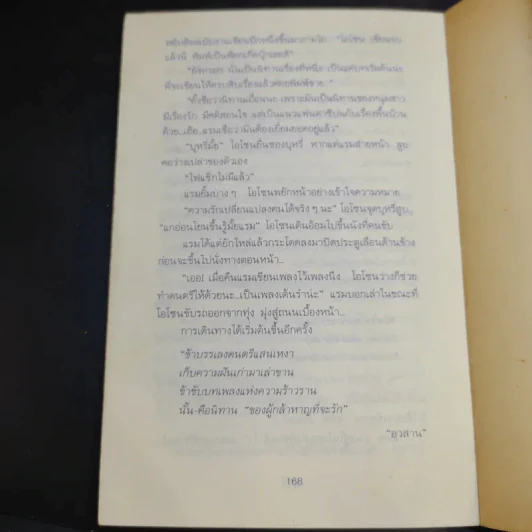 หยิบต้นฉบับงานเขียนปึกหนึ่งขึ้นมาถามไถ่.. "โอโซน เขียนจบ
แล้วนี่ พิมพ์เป็นพ็อกเก็ตบุ๊กเลยดิ"
"ยังหรอก นั่นเป็นนิทานเรื่องที่หนึ่ง เป็นแค่บทเริ่มต้นน่ะ
พี่จะเขียนให้ครบสิบเรื่องแล้วค่อยพิมพ์ขาย.."
"ตั้งชื่อว่านิทานเถื่อนนะ เพราะมันเป็นนิทานของหนุ่มสาว
มีเรื่องรัก มีคติสอนใจ แต่เป็นแนวแฟนตาซีปนกับเรื่องพื้นบ้าน
ด้วย..เฮ้ย..แรมเชื่อว่ามันต้องเยี่ยมยอดอยู่แล้ว"
"บุหรี่มั้ย" โอโซนยื่นซองบุหรี่ หากแต่แรมส่ายหน้า ลูบ
คอว่างเปล่าของตัวเอง
"ไฟแช็กไม่มีแล้ว"
แรมยิ้มบาง ๆ โอโซนพยักหน้าอย่างเข้าใจความหมาย
"ความรักเปลี่ยนแปลงคนได้จริง ๆ นะ" โอโซนจุดบุหรี่สูบ..
"แกอ่อนโยนขึ้นรู้มั้ยแรม" โอโซนเดินอ้อมไปขึ้นนั่งที่คนขับ
แรมได้แต่ยักไหล่แล้วกระโดดลงมาปิดประตูเลื่อนด้านข้าง
ก่อนจะขึ้นไปนั่งทางตอนหน้า...
"เออ! เมื่อคืนแรมเขียนเพลงไว้เพลงนึง โอโซนว่างก็ช่วย
ทำดนตรีให้ด้วยนะ..เป็นเพลงเต้นรำน่ะ" แรมบอกเล่าในขณะที่
โอโซนขับรถออกจากทุ่ง มุ่งสู่ถนนเบื้องหน้า..
การเดินทางได้เริ่มต้นขึ้นอีกครั้ง
"ข้าบรรเลงดนตรีแสนเหงา
เก็บความฝันเก่ามาเล่าขาน
ข้าขับบทเพลงแห่งความร้าวราน
นั้น-คือนิทาน "ของผู้กล้าหาญที่จะรัก"
"อวสาน"
168